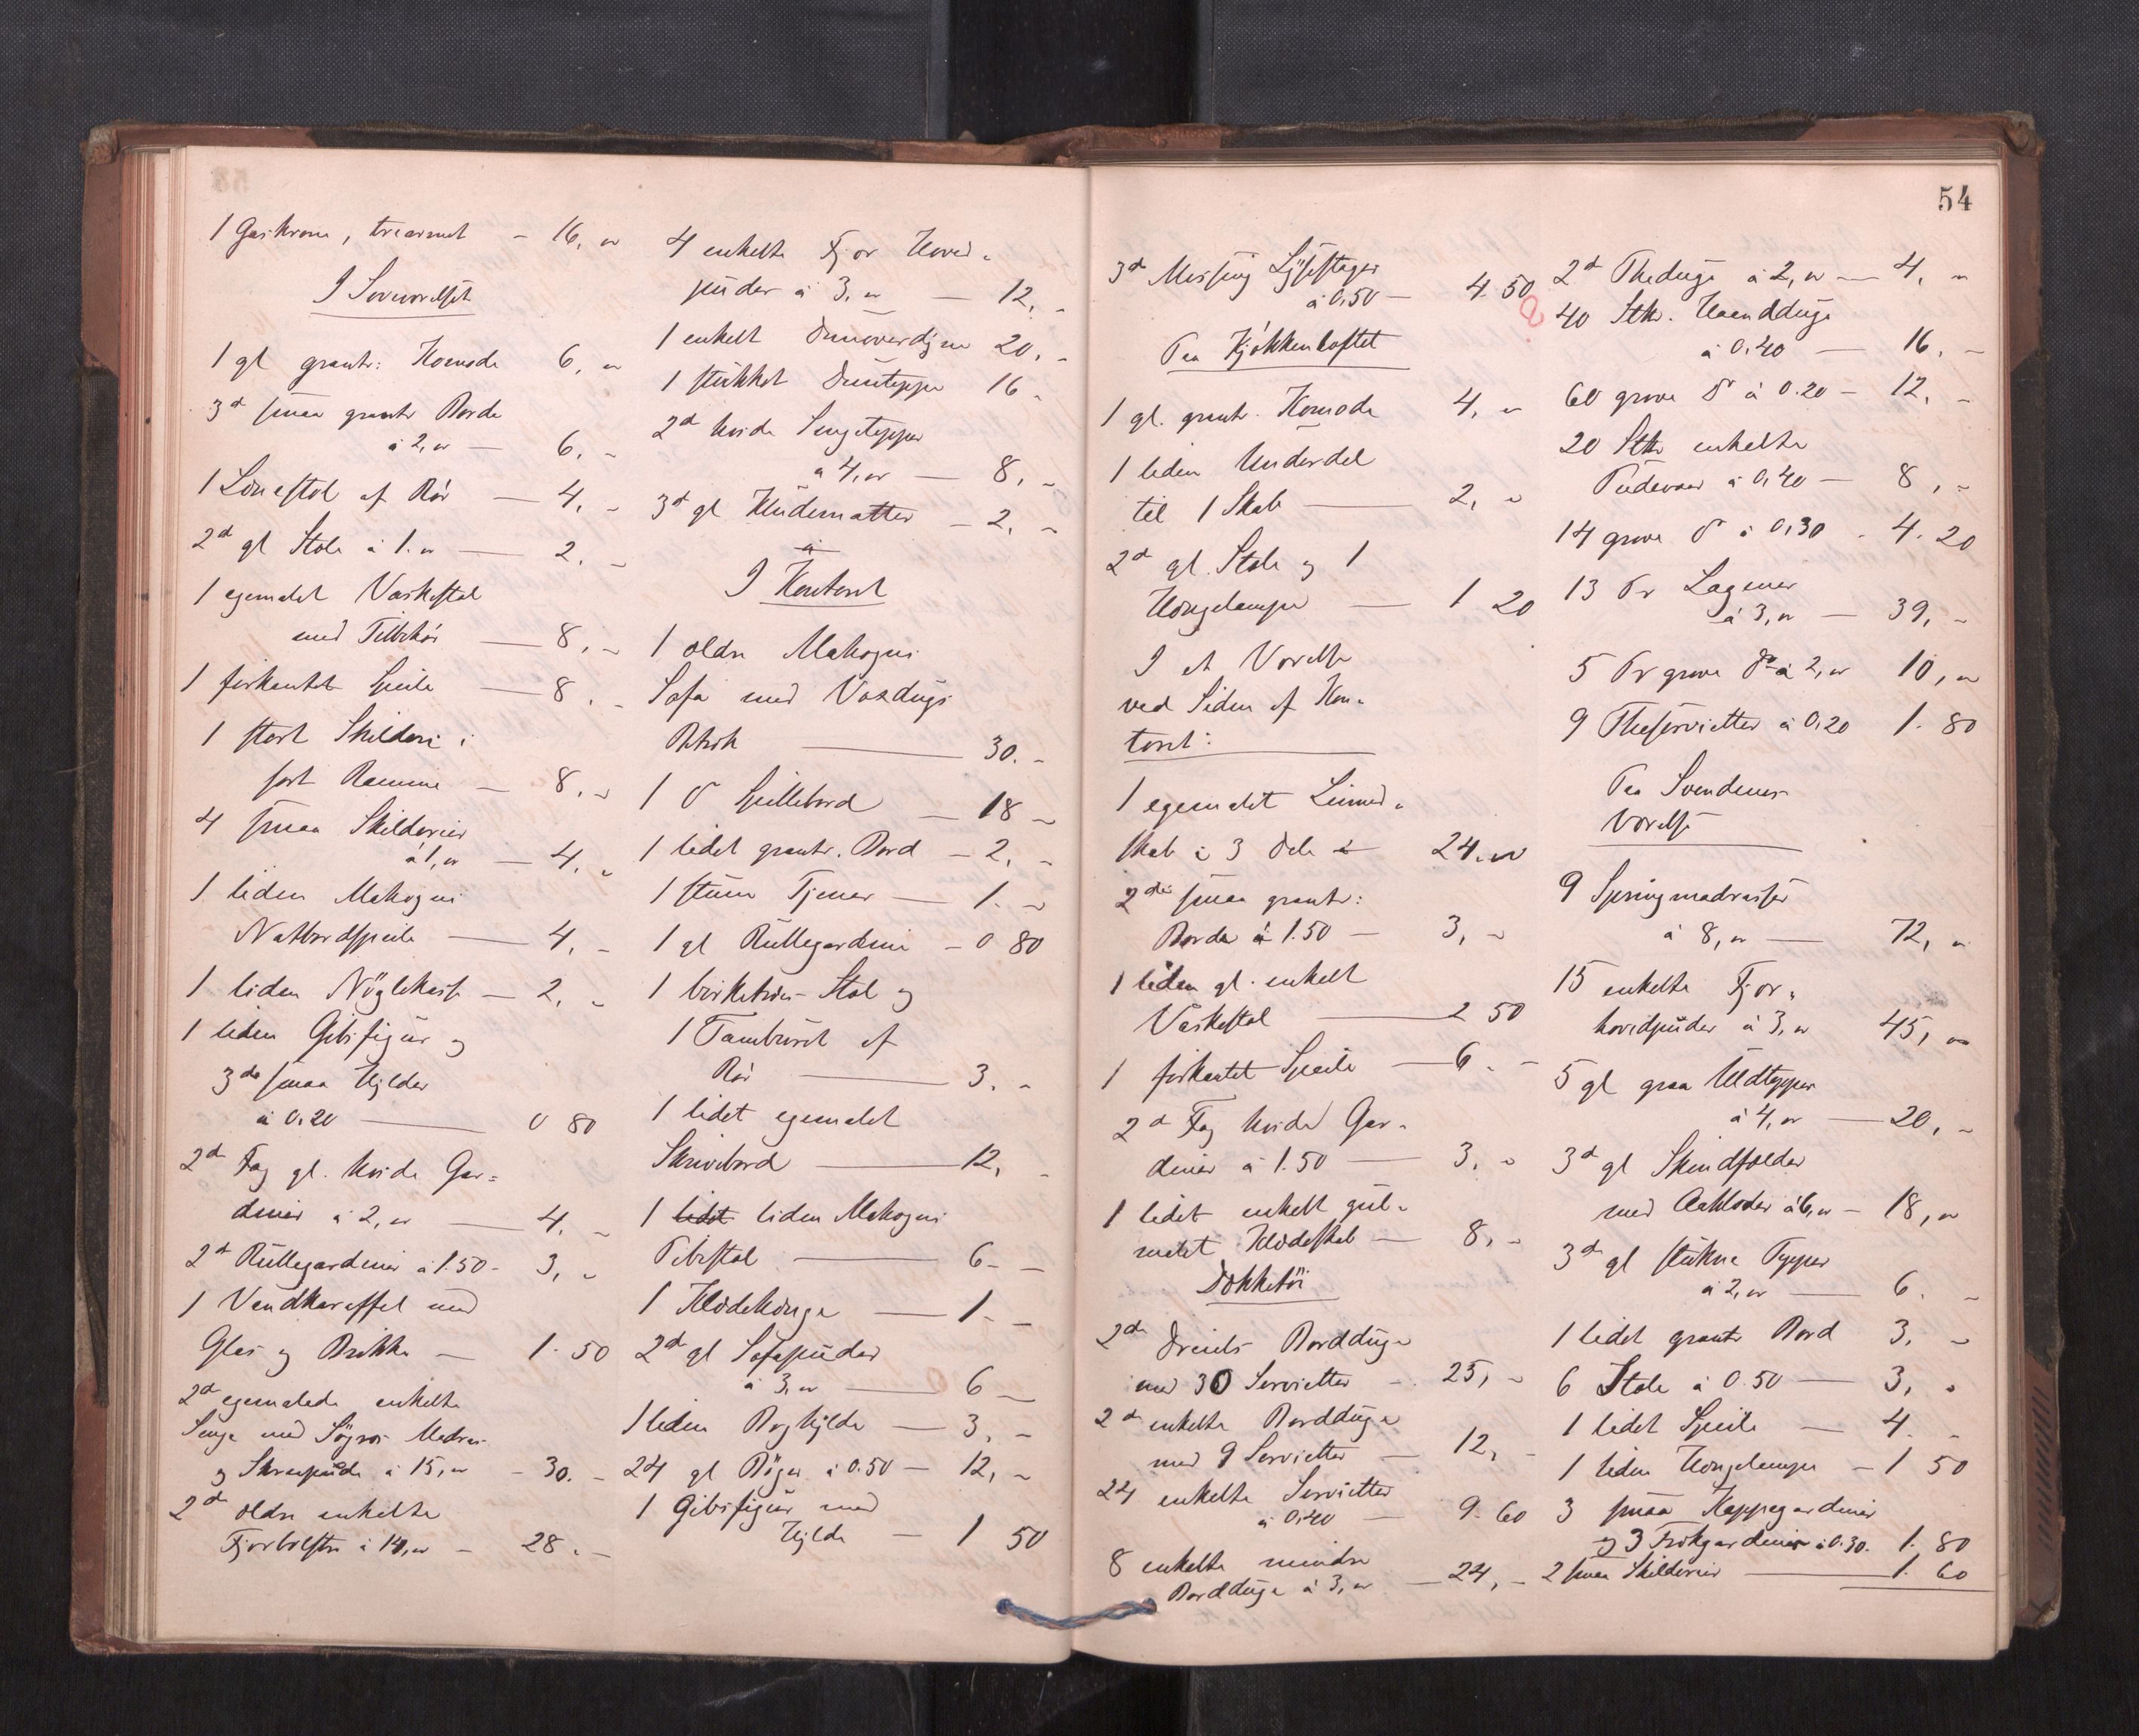 1 Gaskrone, trearmet – 16, "
I Soveværelset
1 gl grantr: Komode 6, "
3de smaa grantr Borde
à 2, " — 6. "
1 Lænestol af Rör — 4, "
2de gl Stole à 1. " — 2. "
1 egemalet Vaskestol
med Tilbehör — 8, "
1 firkantet Speile — 8. "
1 stort Skilderi i
sort Ramme — 8. "
4 smaa Skilderier
à 1, " — 4. "
1 liden Mahogni
Natbordspeile — 4. "
1 liden Nöglekasse — 2. "
1 liden Gibsfigur og
3de smaa Hylder
à 0.20 — 0 80
2de Fag gl. hvide Gar=
diner à 2, " — 4. "
2de Rullegardiner à 1.50 - 3, "
1 Vandkaraffel med
Glas og Brikke — 1. 50
2de egemalede enkelte
Senge med Sögræs Madras
og Skraapude à 15, " – 30. –
2de ældre enkelte
Fjærbolstre à 14, " – 28. –
4 enkelte Fjær Hoved-
puder à 3, " — 12, "
1 enkelt Dunoverdyne 20. "
1 stukket Dunteppe 16 "
2de hvide Sengetepper
a 4, " — 8, "
3de gl Kludematter – 2, "
I Kontoret
1 ældre Mahogni
Sofa med Voxdugs
Betræk — 30. –
1 do Spillebord — 18 –
1 lidet grantr. Bord – 2, "
1 stum Tjener — 1. –
1 gl Rullegardine – 0 80
1 birketræs Stol og
1 Tambúret af
Rör — 3. –
1 lidet egemalet
Skrivebord — 12, –
1 lidet liden Mahogni
Pibestol — 6 –
1 Klædehænge — 1. –
2de gl Sofapuder
à 3, " — 6 –
1 liden Boghylde — 3, –
24 gl Böger à 0.50 – 12, –
1 Gibsfigur med
Hylde — 1 50
54
3de Messing Lysestager
à 0,50 – 4. 50
Paa Kjökkenloftet
1 gl. grantr. Komode 4, "
1 liden Underdel
til 1 Skab — 2, "
2de gl. Stole og 1
Hængelampe — 1 20
I et Værelse
ved Siden af Kon-
toret:
1 egemalet Linned-
skab i 3 Dele 24. "
2de smaa grantr:
Borde à 1.50 — 3, "
1 liden gl. enkelt
Vaskestol — 2 50
1 firkantet Speile — 6. –
2de Fag hvide Gar-
diner à 1.50 — 3, "
1 lidet enkelt gul-
malet Klædeskab — 8, –
Dækketöi
2de Dreiels Bordduge
med 30 Servietter – 25, –
2de enkelte Bordduge
med 9 Servietter — 12, –
24 enkelte Servietter
à 0,40 — 9. 60
8 enkelte mindre
Bordduge à 3, " — 24, –
2de Theduge à 2, " — 4, "
40 Stk. Haandduge
à 0.40 — 16. –
60 grove do à 0.20 – 12, –
20 Stk enkelte
Pudevaar à 0,40 — 8, –
14 grove do à 0,30 - 4. 20
13 Pr Lagener
à 3, " — 39, –
5 Pr grove do à 2, " 10, "
9 Theservietter à 0.20 1. 80
Paa Svendenes
Værelse
9 Springmadrasser
à 8, " — 72, "
15 enkelte Fjær-
hovedpuder à 3, " 45, "
5 gl graa Uldtepper
à 4, " — 20, –
3de gl Skindfælder
med Aaklæder à 6, " – 18, "
3de gl stukne Tepper
à 2, " — 6. –
1 lidet grantr Bord 3, –
6 Stole à 0.50 — 3, "
1 lidet Speile — 4. –
1 liden Hængelampe – 1 50
3 smaa Kappegardiner
og 3 Trækgardiner à 0.30. 1. 80
2 smaa Skilderier — 1. 60